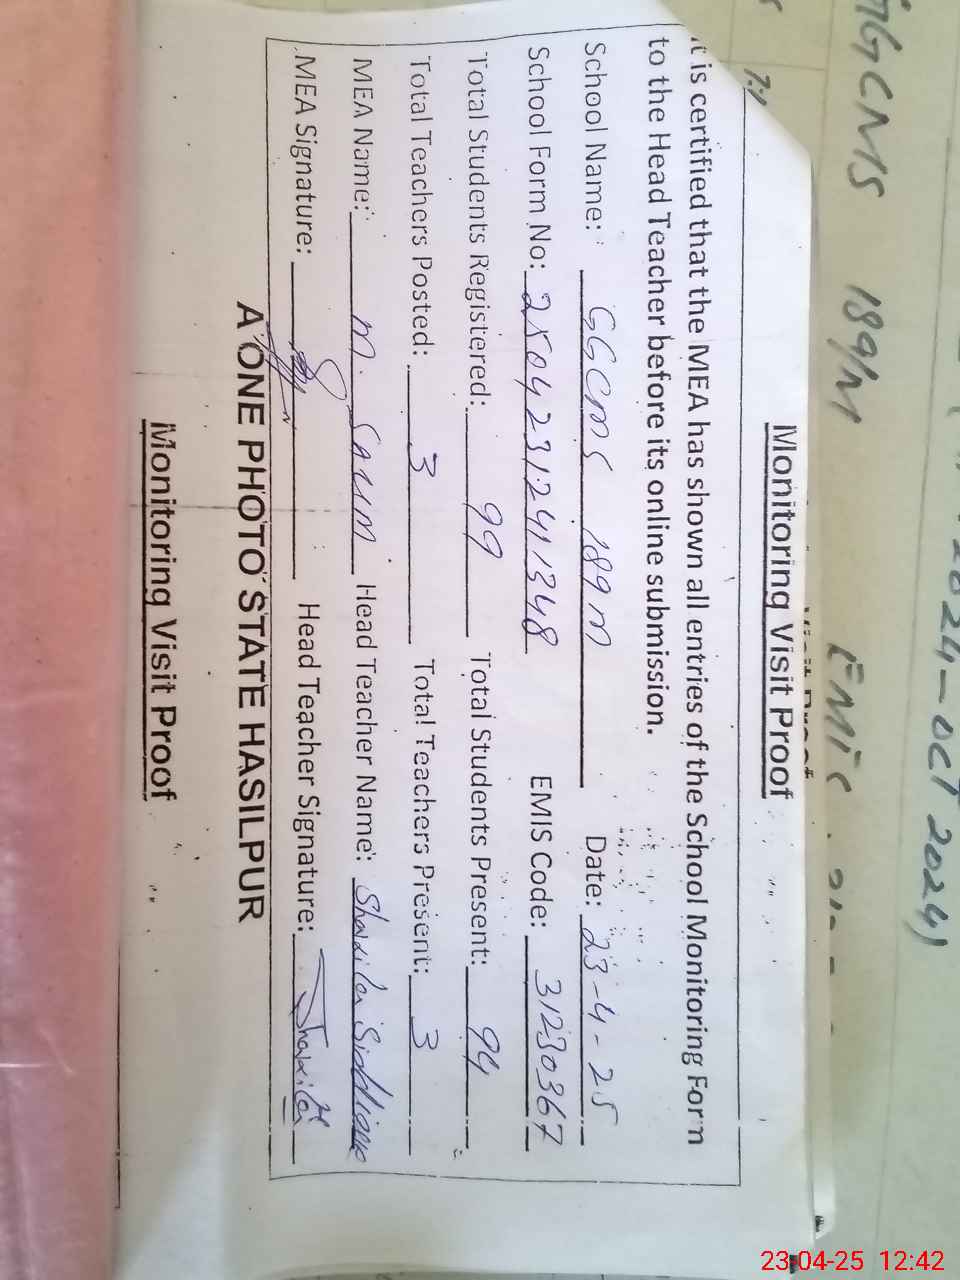 2024-OCT 2024)
GGCMS 189/M EMIS
Visit Proof
Monitoring Visit Proof
It is certified that the MEA has shown all entries of the School Monitoring Form
to the Head Teacher before its online submission.
School Name: GGCMS 189M Date: 23-4-25
School Form No: 2504231241348 EMIS Code: 31230367
Total Students Registered: 99 Total Students Present: 94
Total Teachers Posted: 3 Total Teachers Present: 3
MEA Name: M. SALIM Head Teacher Name: Shakila Siddique
MEA Signature: Head Teacher Signature: Shakila
A ONE PHOTO STATE HASILPUR
Monitoring Visit Proof
23-04-25 12:42